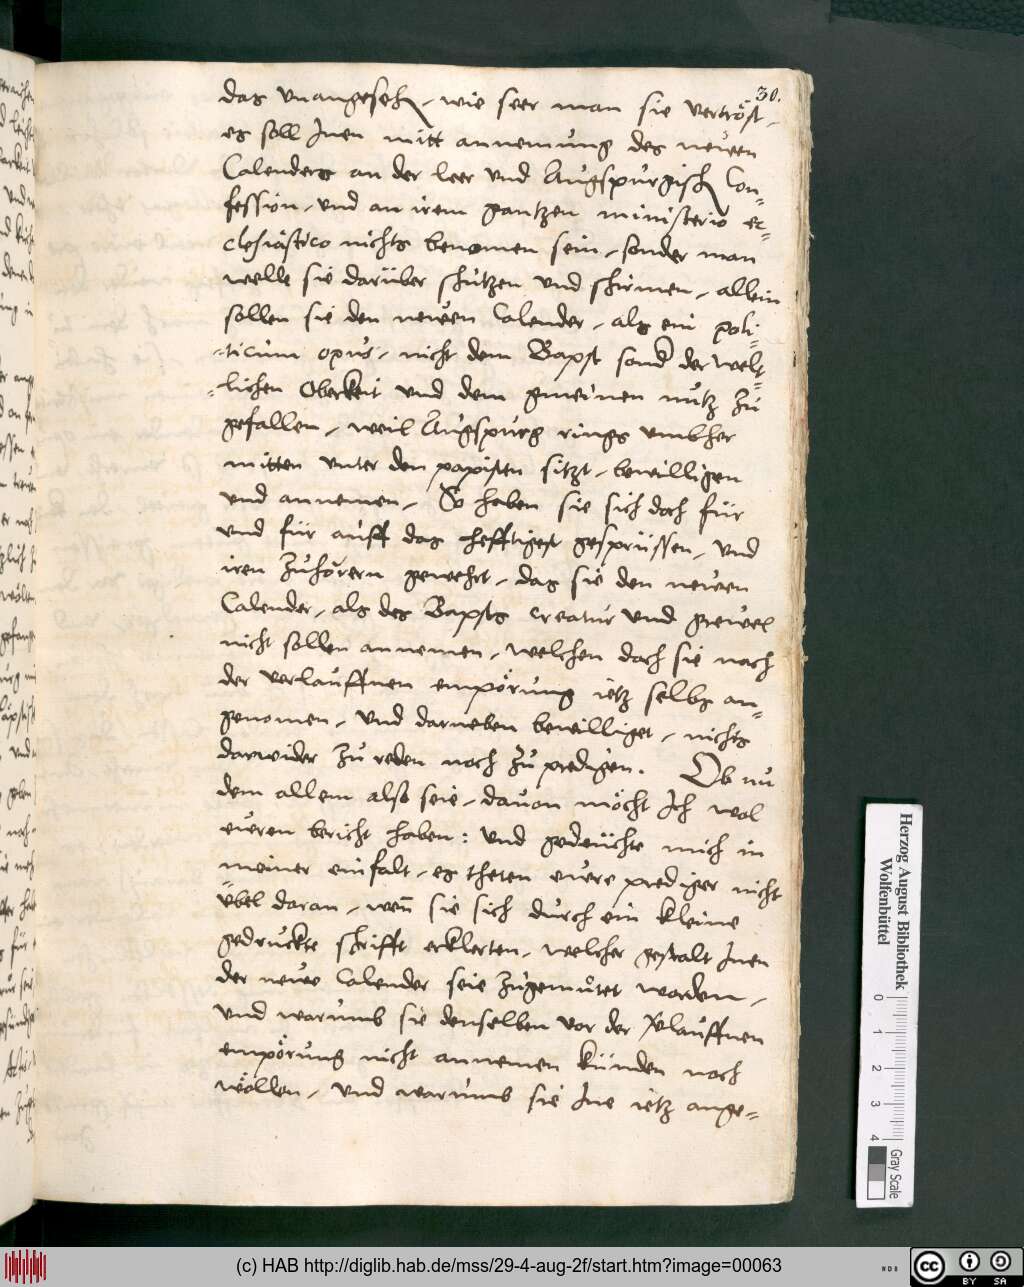 30.
das vnangesehen, wie seer man sie vertröst,
es soll Inen mitt annemung des newen
Calenders an der leer vnd Augspurgischen Con=
fession, vnd an irem gantzen ministerio ec=
clesiastico nichts benomen sein, sonder man
welle sie darüber schützen vnd schirmen, allein
sollen sie den newen Calender, als ein poli=
ticum opus, nicht dem Bapst sonder der welt=
=lichen Oberkeit vnd dem gmeinen nutz zu
gefallen, weil Augspurg rings vmbher
mitten vnter den papisten sitzt, bewilligen
vnd annemen, So haben sie sich doch für
vnd für auff das hefftigest gesprüssen, vnd
iren Zuhörern gewehrt, das sie den newen
Calender, als des Bapsts creatur vnd grewel
nicht sollen annemen, welchen doch sie nach
der verlauffnen empörung ietz selbs an=
genomen, vnd darneben bewilliget, nichts
darwider zu reden noch zu predigen. Ob nu
dem allem also seie, dauon möcht Ich wol
eueren bericht haben: vnd gedeüchte mich in
meiner einfalt, es theten euere prediger nicht
übel daran, wenn sie sich durch ein kleine
gedruckte schrifft erklerten, welcher gestalt Inen
der neuwe Calender seie zugemutet worden,
vnd warumb sie denselben vor der verlauffnen
empörung nicht annemen künden noch
wöllen, vnd warumb sie Ine ietz ange=
Herzog August Bibliothek
Wolfenbüttel
0 1 2 3 4
Gray Scale
(c) HAB http://diglib.hab.de/mss/29-4-aug-2f/start.htm?image=00063
HAB
cc BY SA